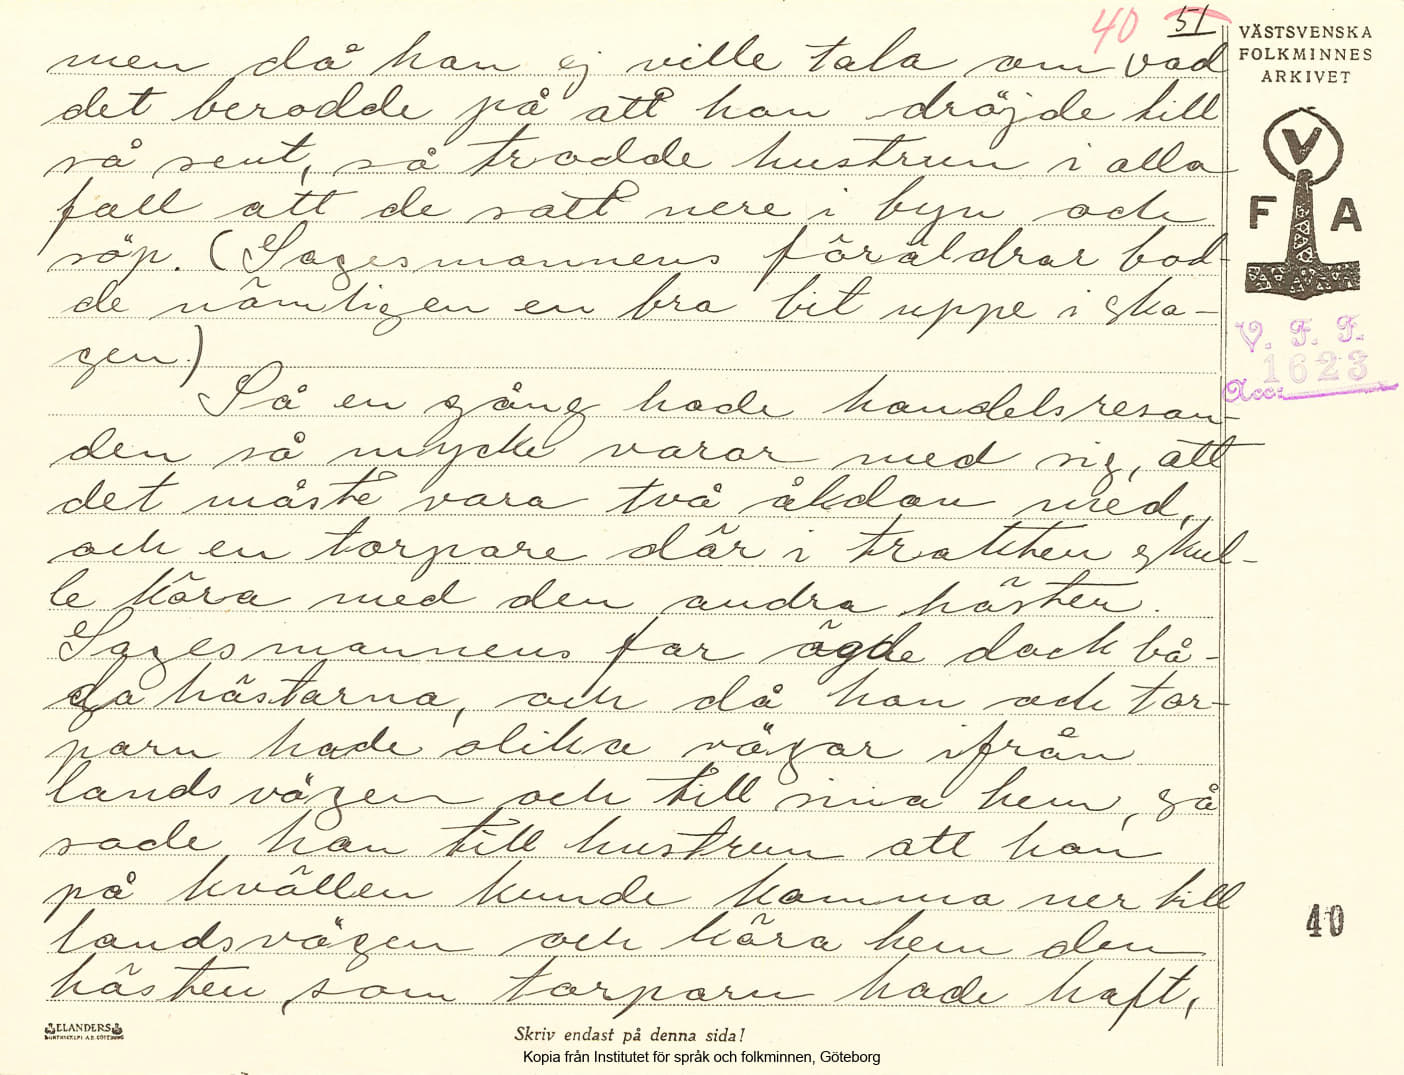 40 51
VÄSTSVENSKA
FOLKMINNES
ARKIVET
men då han ej ville tala om vad
det berodde på att han dröjde till
så sent, så trodde hustrun i alla
fall att de satt nere i byn och
söp. (Sagesmannens föräldrar bod-
de nämligen en bra bit uppe i sko-
gen.)
Så en gång hade handelsresan-
den så mycke varor med sig, att
det måste vara två åkdon med,
och en torpare där i trakten skul-
le köra med den andra hästen.
Sagesmannens far ägde dock bå-
da hästarna, och då han och tor-
parn hade olika vägar ifrån
landsvägen och till sina hem, så
sade han till hustrun att hon
på kvällen kunde komma ner till
landsvägen och köra hem den
hästen, som torparn hade haft,
V
F A
V. F. F.
1623
Acc:
40
ELANDERS
Skriv endast på denna sida!
Kopia från Institutet för språk och folkminnen, Göteborg